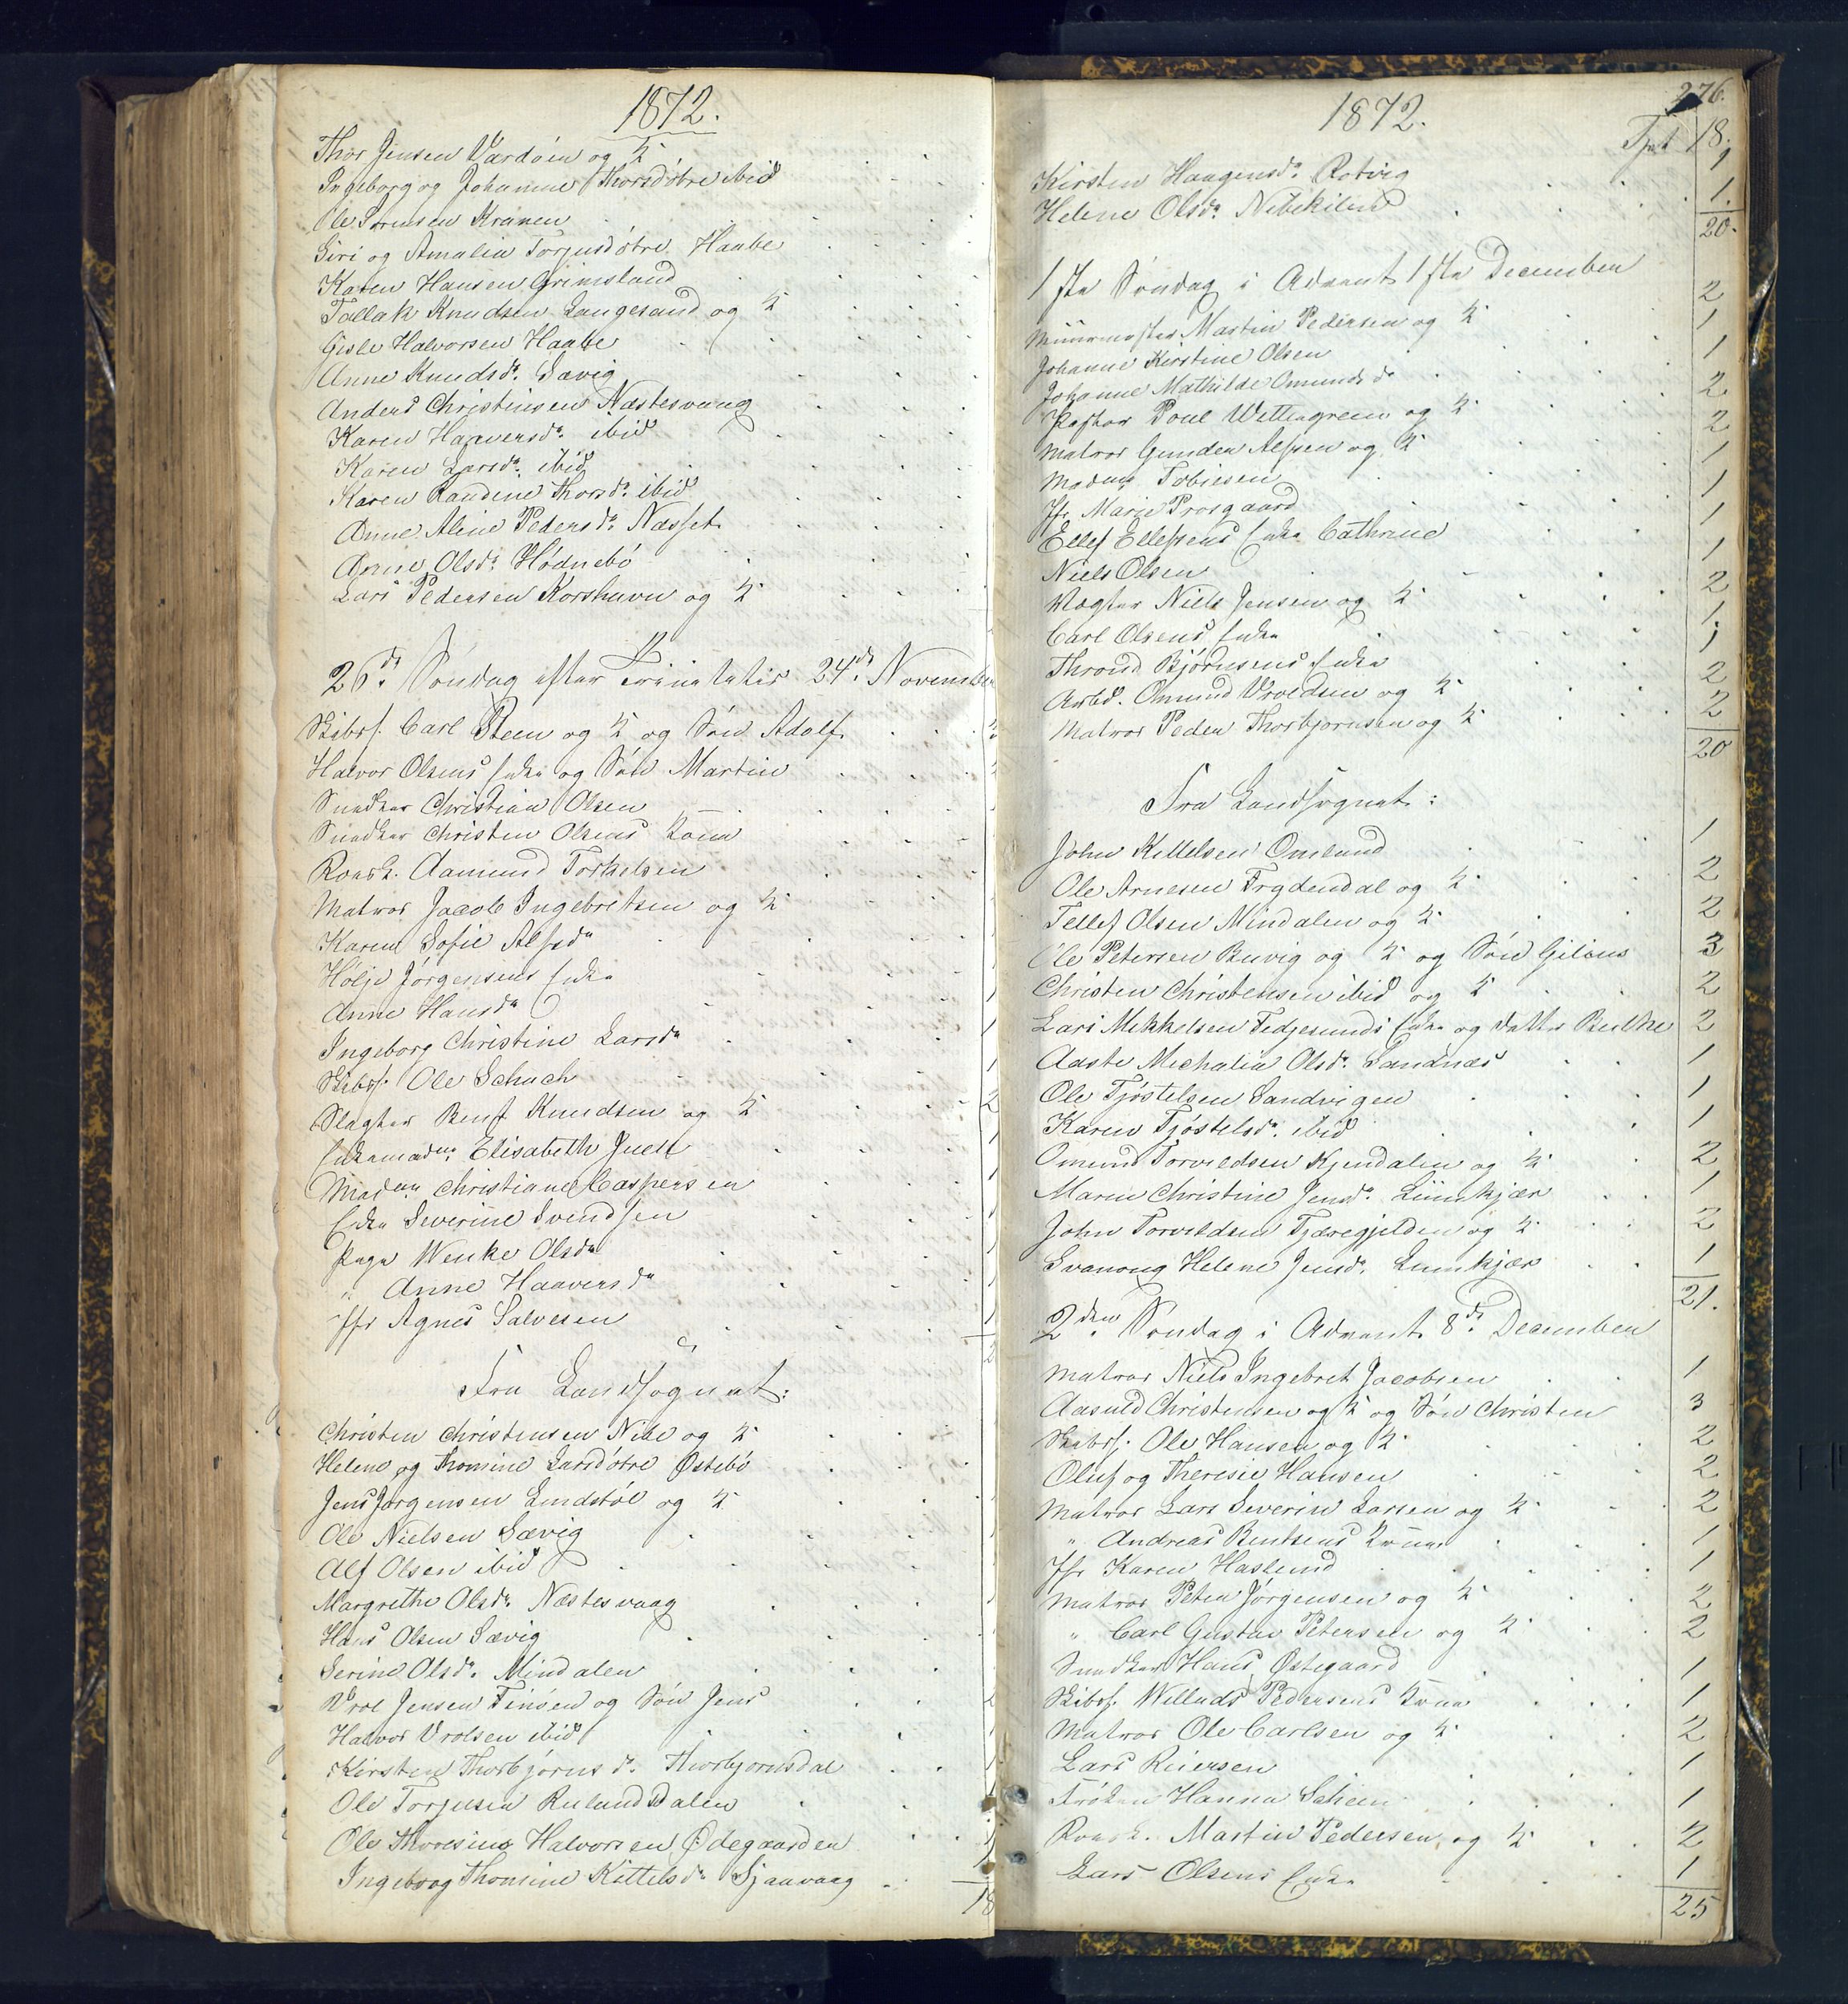 1872.
Thor Jensen Værdøen og K.
Ingeborg og Johanne Thorsdøtre ibid
Ole Sørensen Kranen
Siri og Amalia Torjusdøtre Haabe
Karen Hansen Grimsland
Tallak Knudsen Langesand og K.
Gisle Halvorsen Haabe
Anne Knudsd. Sævig
Anders Christensen Næstesvaag
Karen Haaversd. ibid
Karen Larsd. ibid
Karen Randine Thorsd. ibid
Anne Aline Pedersd. Næsset
Anne Olsd. Hødnebø
Lars Pedersen Korshavn og K.
26de Søndag efter Trinitatis 24de November
Skibsf. Carl Steen og K. og Søn Adolf
Halvor Olsens Enke og Søn Martin
Snedker Christian Olsen
Snedker Christen Olsens Kone
Aamund Torkelsen
Matros Jacob Ingebretsen og K.
Karen Sofie Alfsd.
Holje Jørgensens Enke
Anne Hansd.
Ingeborg Christine Larsd. 1
Skibsf. Ole Schach 1
Slagter Bent Knudsen og K. 2
Enkemadme Elisabeth Juell 1
Madame Christiane Caspersen 1
Enke Severine Svendsen
Pige Wenke Olsd.
" Anne Haaversd.
Jfr Agnes Salvesen
Fra Landsognet:
Christen Christensen Nibe og K.
Helene og Thomine Larsdøtre Østebø
Jens Jørgensen Lindstøl og K.
Ole Nielsen Sævig
Alf Olsen ibid
Margrethe Olsd. Næstesvaag
Hans Olsen Sævig
Serine Olsd. Mindalen
Vrol Jensen Finsen og Søn Jens
Halvor Vrolsen ibid
Kirsten Thorbjørnsd. Thorbjørnsdal
Ole Torjusen Dalen
Ole Halvorsen Ødegaarden
Ingeborg Thomine Kittelsd. Sjaavaag
18
276.
1872.
Tpt 18.
Kirsten Haagensd. Rotvig 1
Helene Olsd. Nibekilen 1.
20.
1ste Søndag i Advent 1ste December
Muurmester Martin Pedersen og K. 2
Johanne Kirstine Olsen 1
Johanne Mathilde Omundsd. 1
Pastor Poul Wettergreen og K. 2
Matros Gunder Alfsen og K. 2
Madme Tobiesen 1
Jfr Marie Prosgaard 1
Ellef Ellefsens Enke Cathrine 1
Niels Olsen 1
Vægter Niels Jensen og K. 2
Carl Olsens Enke 1.
Thrond Bjørnsens Enke 1
Arbd. Omund Vroldsen og K. 2
Matros Peder Thorbjørnsen og K. 2
20
Fra Landsognet:
John Kittelsen Omlund 1
Ole Arnesen Frydendal og K. 2
Tellef Olsen Mindalen og K. 2
Ole Petersen Buvig og K. og Søn Gilius 3
Christen Christensen ibid og K. 2
Lars Mikkelsen Tedjesunds Enke og datter Birthe 2
Aaste Michalia Olsd. Sandnæs 1
Ole Tjøstelsen Sandvigen 1
Karen Tjøstelsd. ibid 1
Omund Torvildsen Kjendalen og K. 2
Maren Christine Jensd. Limkjær 1
John Torvildsen Tjæregjelden og K. 2
Svanaug Helene Jensd. Limkjær 1
21.
2den Søndag i Advent 8de December
Matros Niels Ingebret Jacobsen 1
Aasuld Christensen og K. og Søn Christen 3
Skibsf. Ole Hansen og K. 2
Oluf og Theresie Hansen 2
Matros Lars Severin Larsen og K. 2
" Andreas Bentsens Kone 1
Jfr Karen Haslund 1
Matros Peter Jørgensen og K. 2
" Carl Gustav Petersen og K. 2
Snedker Hans Østegaard 1
Skibsf. Willads Pedersens Kone 1
Matros Ole Carlsen og K. 2
Lars Reiersen 1
Frøken Hanna Scheen 1
Martin Pedersen og K. 2
Lars Olsens Enke 1
25